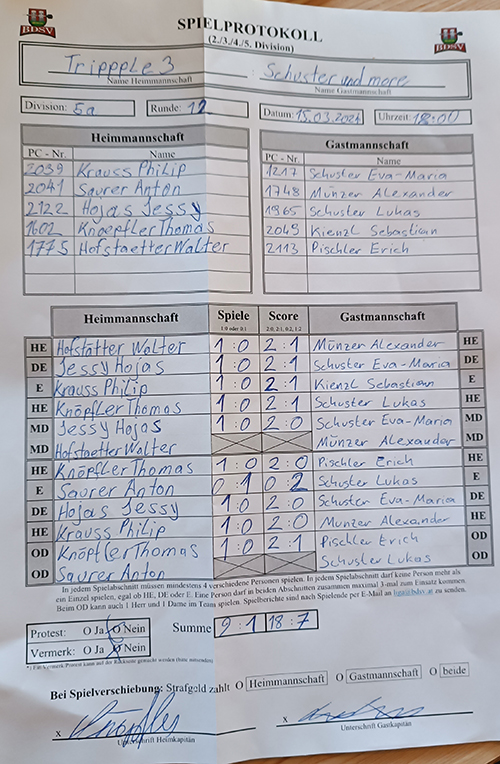 BDSV
SPIELPROTOKOLL
(2./3./4./5. Division)
BDSV
Trippple 3 : Schuster und more
Name Heimmannschaft Name Gastmannschaft
Division: 5a Runde: 12 Datum: 15.03.2024 Uhrzeit: 18:00
Heimmannschaft Gastmannschaft
PC - Nr. Name PC - Nr. Name
2039 Krauss Philip 1217 Schuster Eva-Maria
2041 Saurer Anton 1748 Münzer Alexander
2122 Hojas Jessy 1965 Schuster Lukas
1602 Knoepfler Thomas 2049 Kienzl Sebastian
1775 Hofstaetter Walter 2113 Pischler Erich
Heimmannschaft Spiele Score Gastmannschaft
1:0 oder 0:1 2:0, 2:1, 0:2, 1:2
HE Hofstätter Walter 1:0 2:1 Münzer Alexander HE
DE Jessy Hojas 1:0 2:1 Schuster Eva-Maria DE
E Krauss Philip 1:0 2:1 Kienzl Sebastian E
HE Knöpfler Thomas 1:0 2:1 Schuster Lukas HE
MD Jessy Hojas 1:0 2:0 Schuster Eva-Maria MD
MD Hofstaetter Walter Münzer Alexander MD
HE Knöpfler Thomas 1:0 2:0 Pischler Erich HE
E Saurer Anton 0:1 0:2 Schuster Lukas E
DE Hojas Jessy 1:0 2:0 Schuster Eva-Maria DE
HE Krauss Philip 1:0 2:0 Münzer Alexander HE
OD Knöpfler Thomas 1:0 2:1 Pischler Erich OD
OD Saurer Anton Schuster Lukas OD
In jedem Spielabschnitt müssen mindestens 4 verschiedene Personen spielen. In jedem Spielabschnitt darf keine Person mehr als
ein Einzel spielen, egal ob HE, DE oder E. Eine Person darf in beiden Abschnitten zusammen maximal 3-mal zum Einsatz kommen
Beim OD kann auch 1 Herr und 1 Dame im Team spielen. Spielberichte sind nach Spielende per E-Mail an liga@bdsv.at zu senden.
Protest: O Ja O Nein Summe 9:1 18:7
Vermerk: O Ja O Nein
*) Ein Vermerk/Protest kann auf der Rückseite gemacht werden (bitte ankreuzen)
Bei Spielverschiebung: Strafgeld zahlt O Heimmannschaft O Gastmannschaft O beide
x Knöpfler x
Unterschrift Heimkapitän Unterschrift Gastkapitän